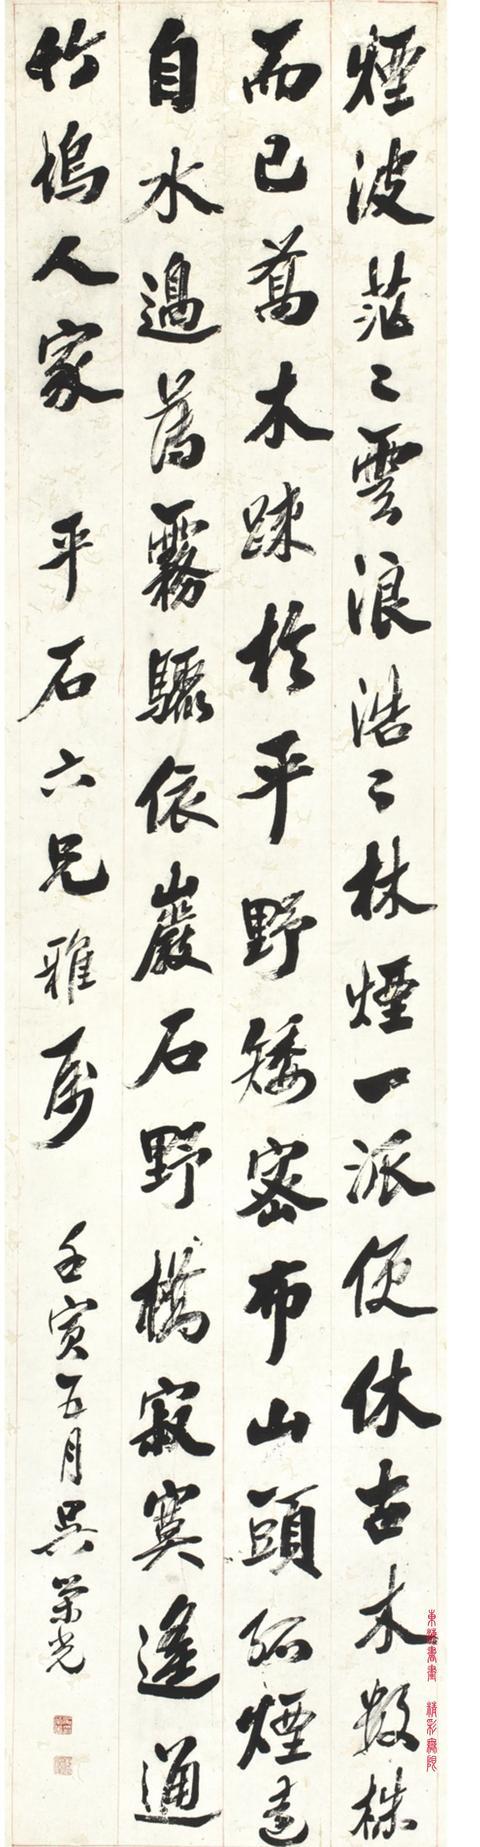 煙波茫〻雲浪浩〻林煙一派便休古木數株
而已喬木疎於平野矮密布山頭孤煙遠
自水邊霧驟依巖石野橋寂寞遙通
竹塢人家 平石六兄雅屬 壬寅五月吳榮光
書畫 精彩無限